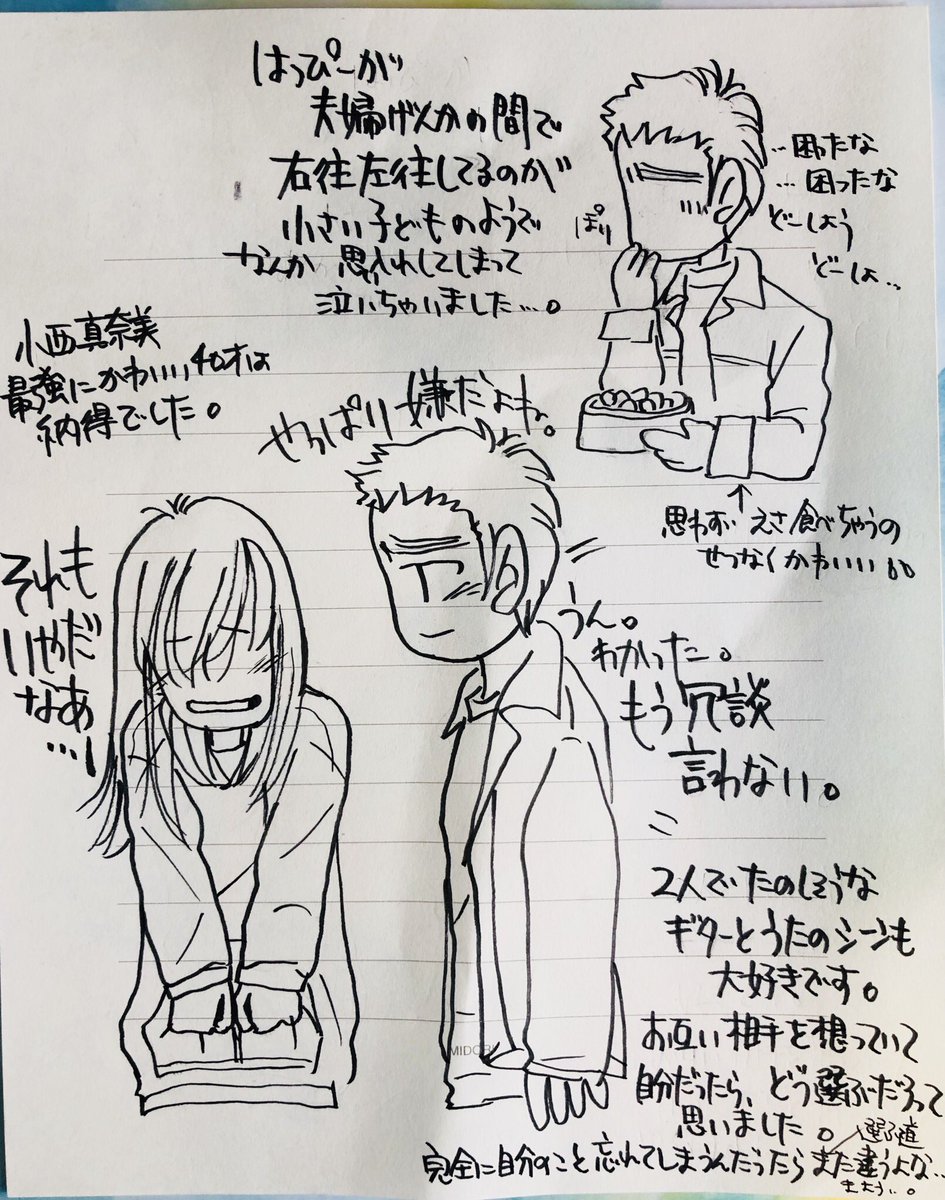 はっぴーが
夫婦げんかの間で
右往左往してるのが
小さい子どものようで
なんか 思入れしてしまって
泣いちゃいました…。
…困たな
…困ったな
どーしよう
どーしよ…
ぽり
↑
思わず えさ食べちゃうの
せつなくかわいい。。
小西真奈美
最強にかわいい40才は
納得でした。
やっぱり 嫌だよね。
それも
いやだ
なあ
…
うん。
わかった。
もう冗談
言わない。
2人でたのしそうな
ギターとうたのシーンも
大好きです。
お互い相手を想っていて
自分だったら、どう選ぶだろって
思いました。
選ぶ道
完全に自分のこと忘れてしまうんだったら また違うよな…
MIDORI